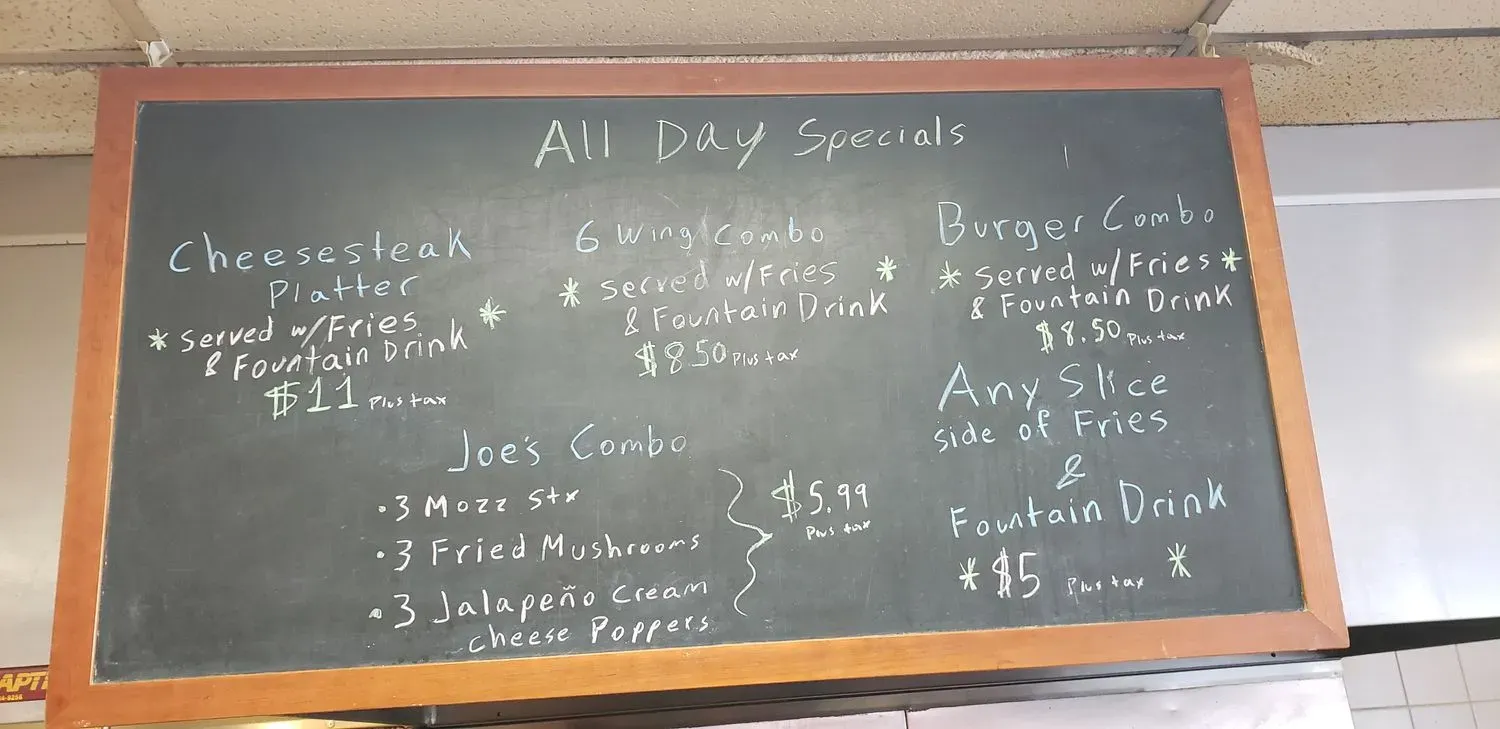 All Day Specials
Cheesesteak
Platter
* Served w/Fries *
& Fountain Drink
$11 Plus tax
6 Wing Combo
* Served w/Fries *
& Fountain Drink
$8.50 Plus tax
Burger Combo
* Served w/Fries *
& Fountain Drink
$8.50 Plus tax
Joe's Combo
• 3 Mozz Stx
• 3 Fried Mushrooms
• 3 Jalapeño Cream
cheese Poppers
$5.99
Plus tax
Any Slice
side of Fries
&
Fountain Drink
* $5 Plus tax *